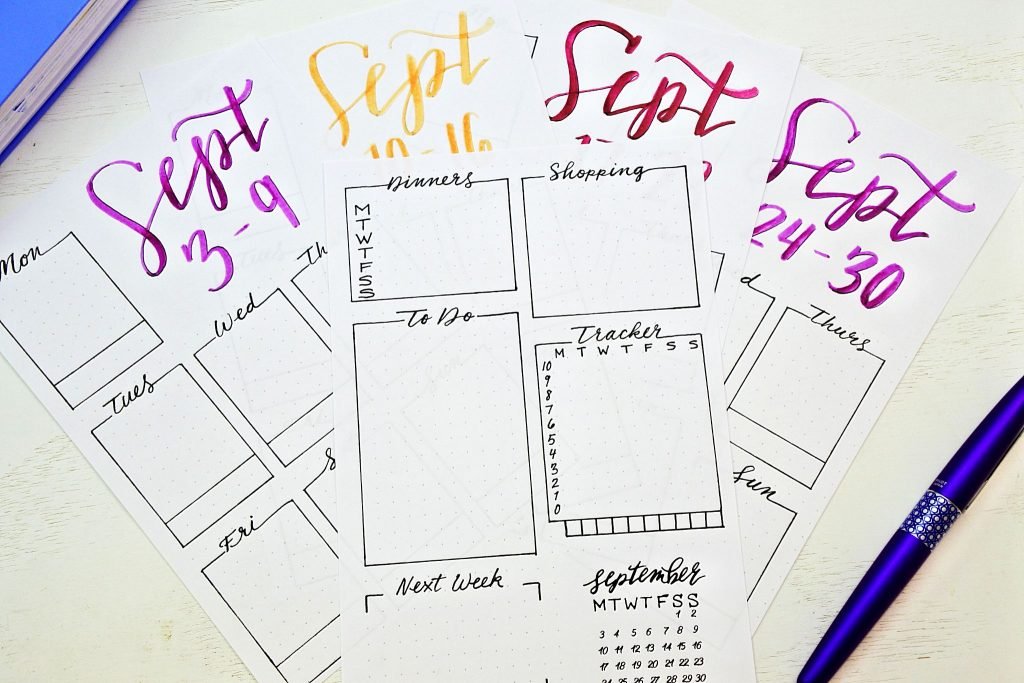 Sept
3-9
Mon
Tues
Wed
Th
Fri
S
Sept
10-16
Sept
Sept
24-30
d
Thurs
Sun
Dinners
M
T
W
T
F
S
S
Shopping
To Do
Tracker
M T W T F S S
10
9
8
7
6
5
4
3
2
1
0
Next Week
September
M T W T F S S
1 2
3 4 5 6 7 8 9
10 11 12 13 14 15 16
17 18 19 20 21 22 23
24 25 26 27 28 29 30